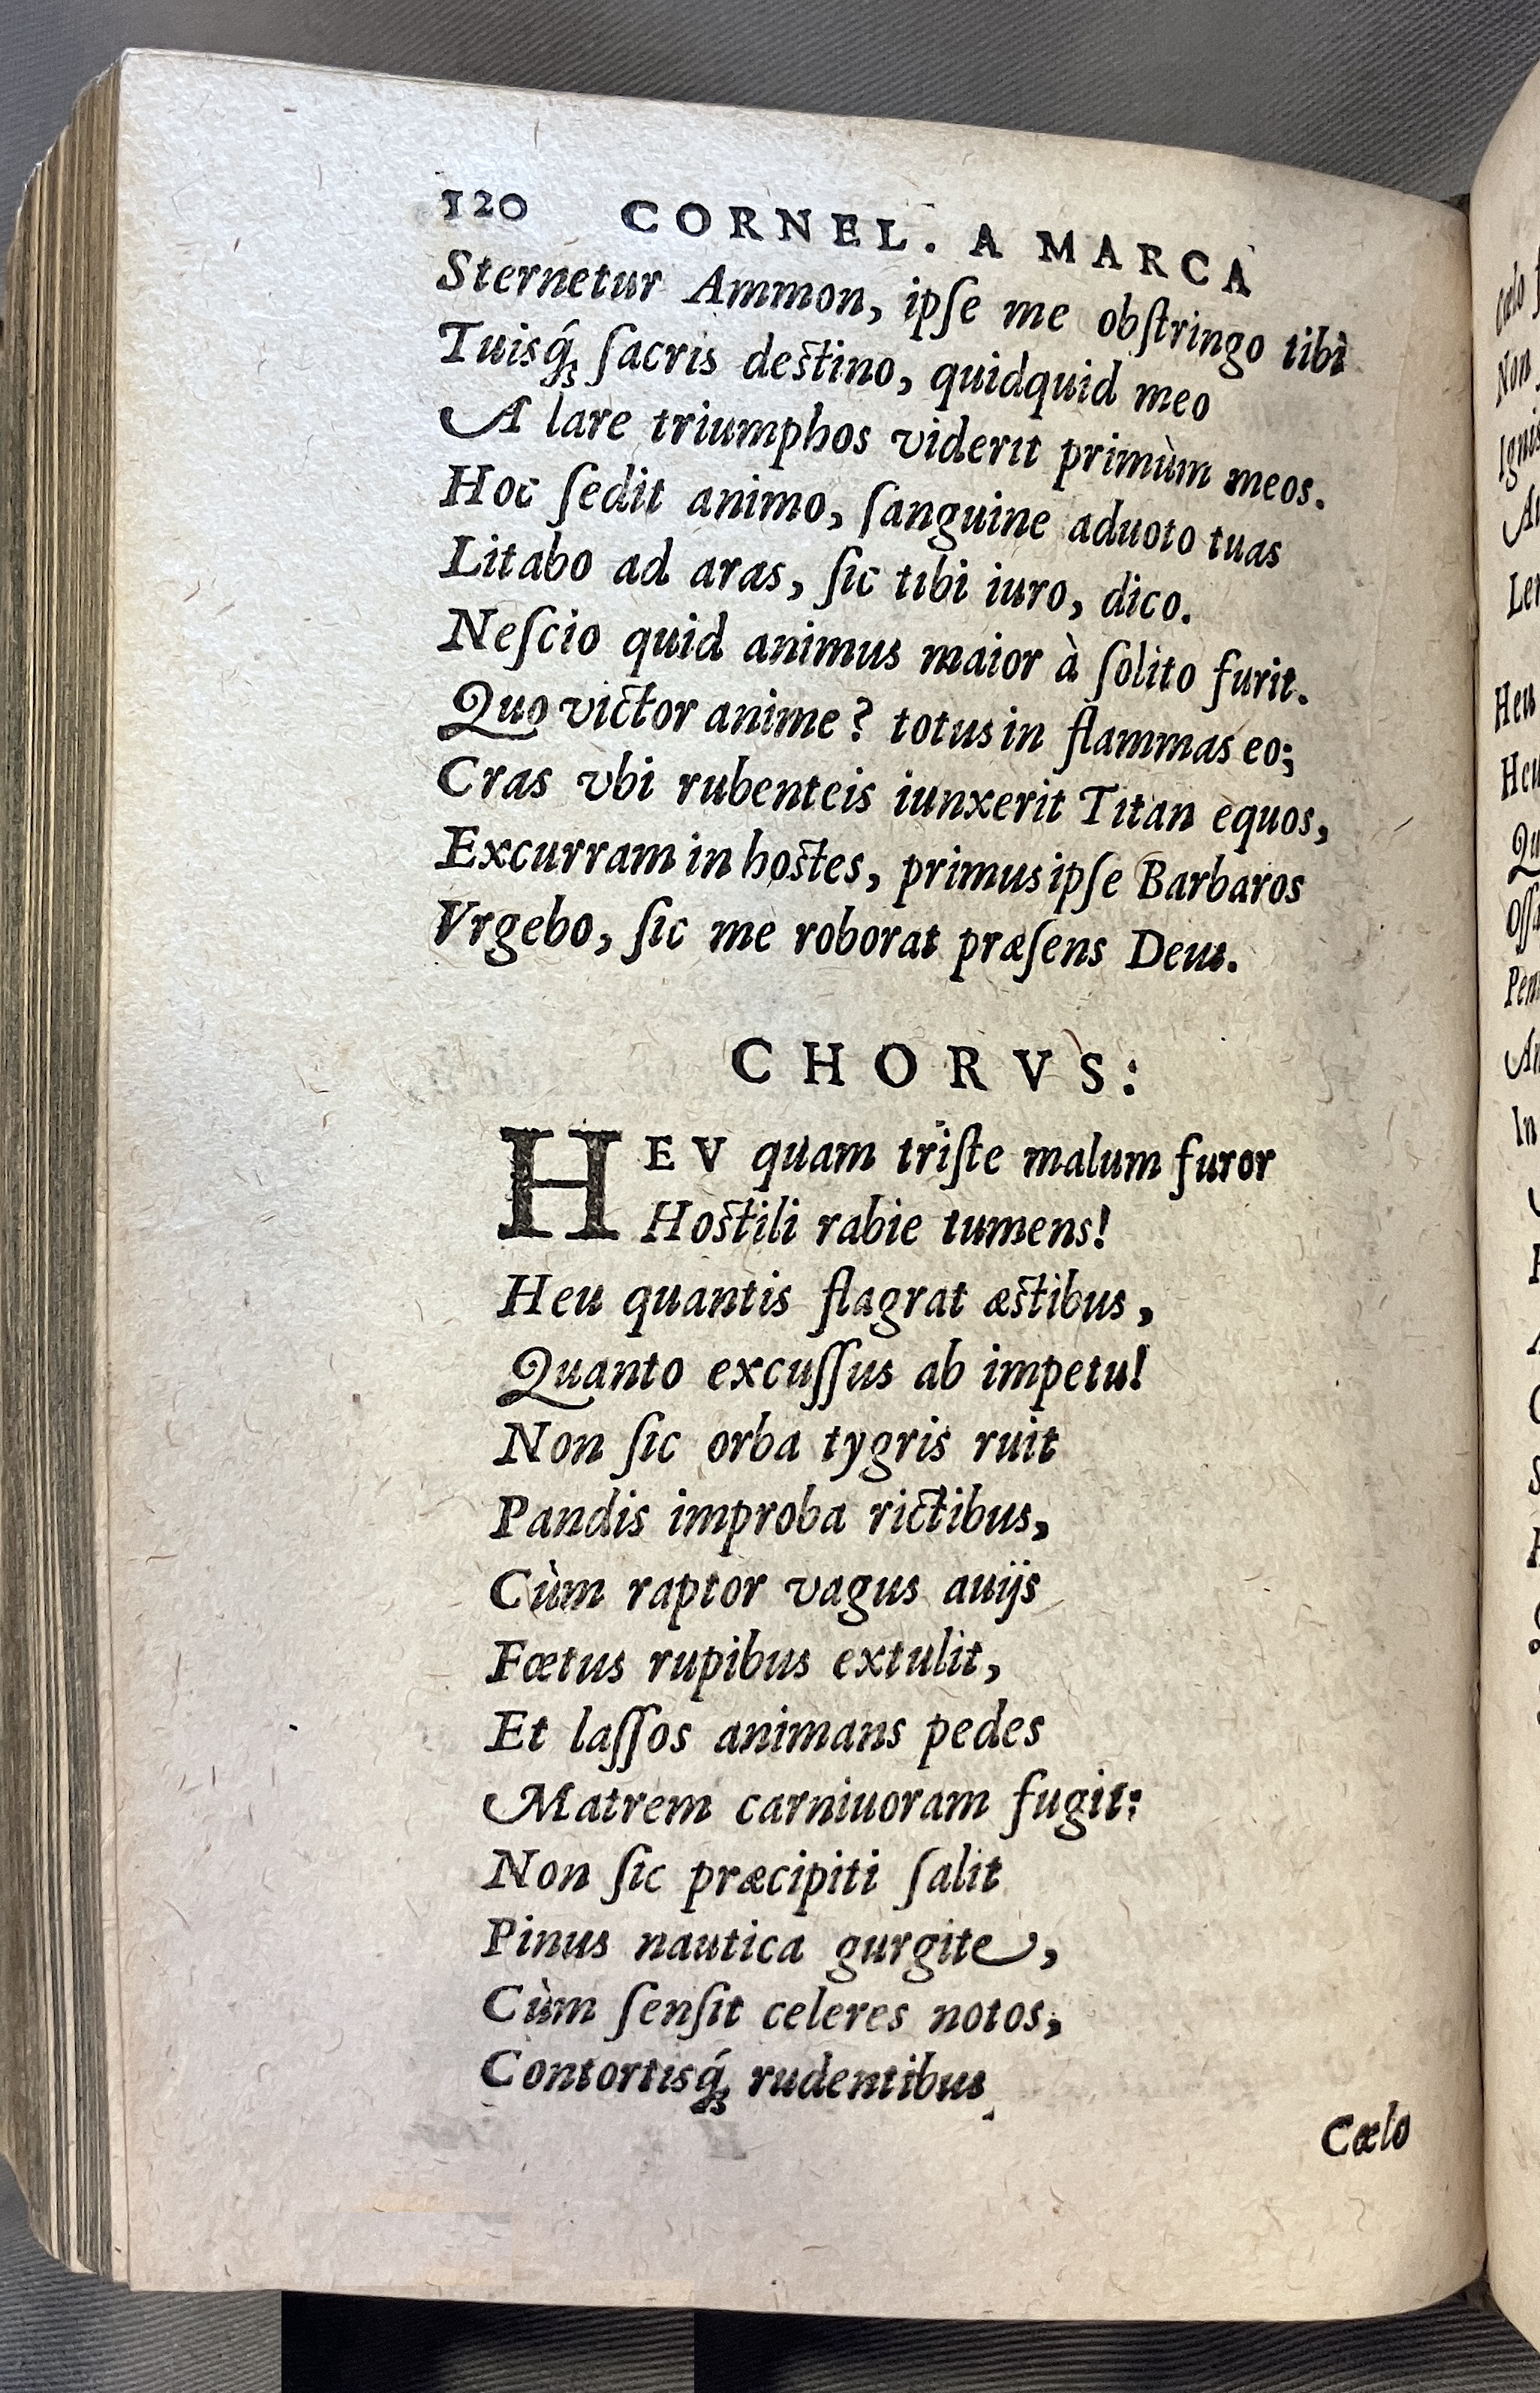 120 CORNEL. A MARCA
Sternetur Ammon, ipſe me obſtringo tibi
Tuisq́; ſacris deſtino, quidquid meo
A lare triumphos viderit primùm meos.
Hoc ſedit animo, ſanguine aduoto tuas
Litabo ad aras, ſic tibi iuro, dico.
Neſcio quid animus maior à ſolito furit.
Quo victor anime? totus in flammas eo;
Cras vbi rubenteis iunxerit Titan equos,
Excurram in hoſtes, primus ipſe Barbaros
Vrgebo, ſic me roborat præſens Deus.
CHORVS:
HEV quam triſte malum furor
Hoſtili rabie tumens!
Heu quantis flagrat æſtibus,
Quanto excuſſus ab impetu!
Non ſic orba tygris ruit
Pandis improba rictibus,
Cùm raptor vagus auijs
Fœtus rupibus extulit,
Et laſſos animans pedes
Matrem carniuoram fugit:
Non ſic præcipiti ſalit
Pinus nautica gurgite,
Cùm ſenſit celeres notos,
Contortisq́; rudentibus
Cœlo
Cœlo
Non
Heu